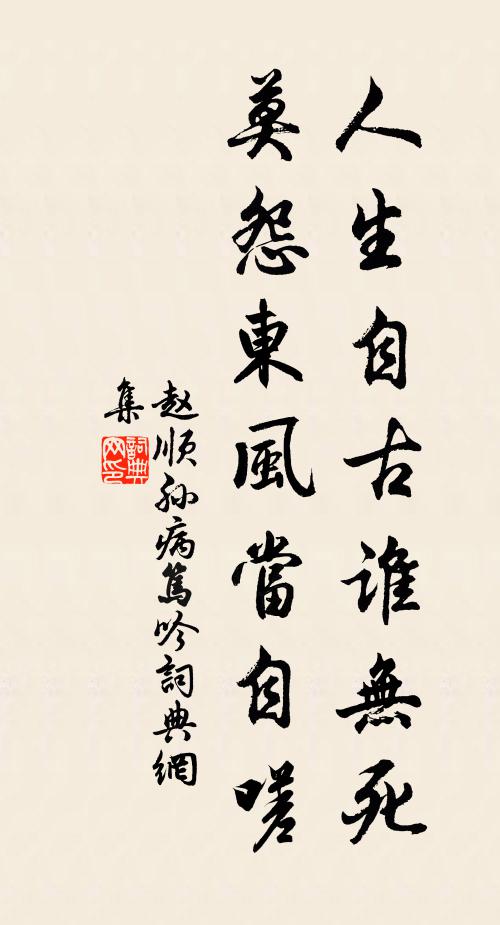 人生自古誰無死
莫怨東風當自嗟
赵順孙病篤吟詞典網
集
詞典網印